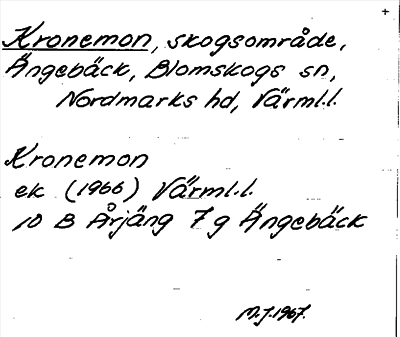 Kronemon, skogsområde,
Ängebäck, Blomskogs sn,
Nordmarks hd, Värml.l.
Kronemon
ek (1966) Värml.l.
10 B Årjäng 7 g Ängebäck
M.J.1967.